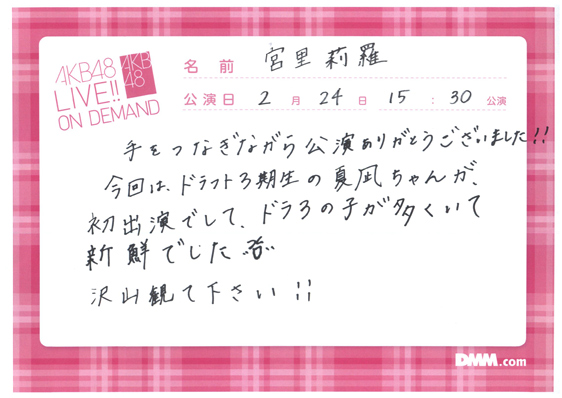 AKB48
LIVE!!
ON DEMAND
AKB
48
名前 宮里莉羅
公演日 2月24日 15:30公演
手をつなぎながら公演ありがとうございました!!
今回は、ドラフト3期生の夏凪ちゃんが、
初出演でして、ドラ3の子が多くいて
新鮮でした
沢山観て下さい!!
DMM.com